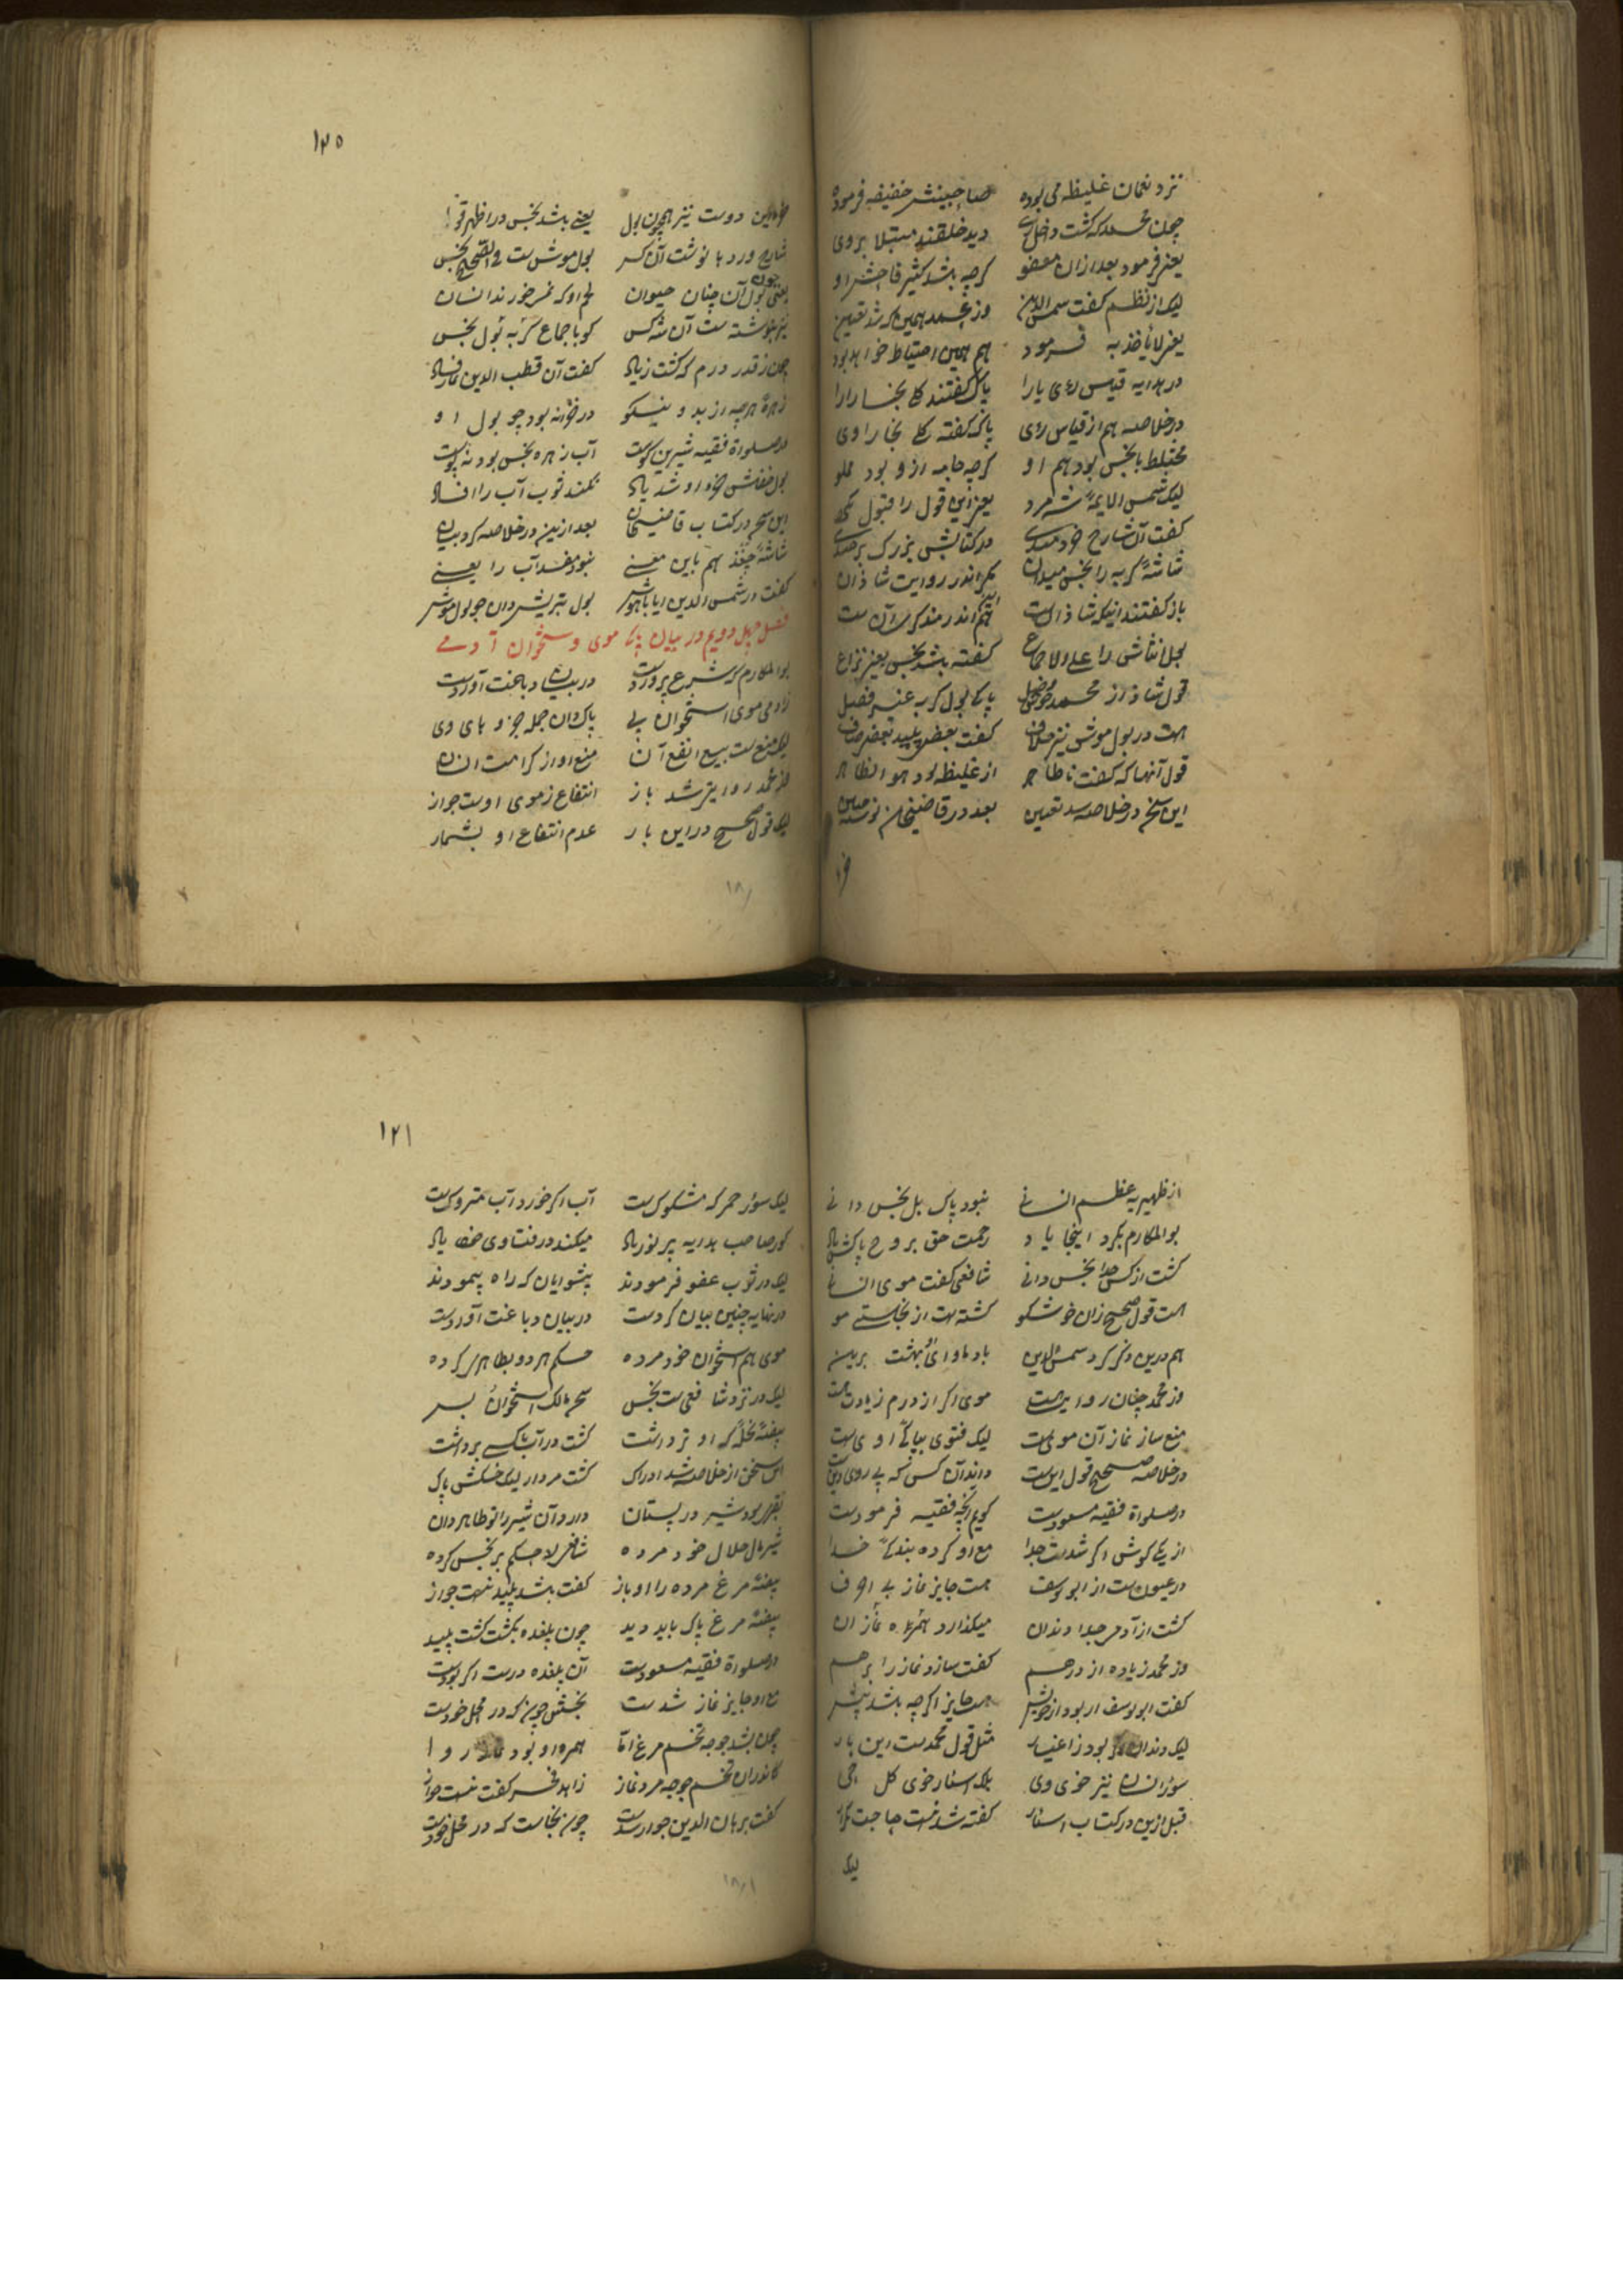 نزد نعمان غلیظه می بوده صاحبینش خفیفه فرموده
چون محمد که گشت داخل ری دید خلقند مبتلا بروی
یعنی فرمود بعد ازان معفو گرچه باشد کثیر فاحش او
لیک از نظم گفت شمس الدین وز محمد همین که شد تعیین
یعنی لا نأخذ به فرمود هم همین احتیاط خواهد بود
در هدایه قیاس رأی یارا پاک گفتند کل بخارا را
در خلاصه هم از قیاس رأی پاک گفته کل بخارا وی
مختلط با نجس بود هم او گرچه جامه ازو بود مملو
لیک شمس الایمه نشمرد یعنی این قول را قبول نکرد
گفت آن شارح خردمندی در کتابش بزرگ برجندی
شاشه گربه را نجس میدان مگر اندر روایت شاذان
باز گفتند اینکه شاذ است هم اندر مذکر آن است
گفته باشد نجس یعنی نزاع
قول شاذ از محمد پاکی بول گربه عند فضل
هست در بول موش نیز خلاف گفت بعضی پلید بعضی صاف
قول آنها که گفت ناطاهر از غلیظه بود هو الظاهر
این سخن در خلاصه شد تعیین بعد در قاضیخان نوشته مبین
۱۲۵
دوست نیز همچون بول یعنی باشد نجس در اظهر قول
شارح ورد با نوشت آن کس بول موش است فی الصحیح نجس
یعنی چون بول آن چنان حیوان لحم او که نمیخورند انسان
نیز بنوشته است آن شه کس کو باجماع گربه بول نجس
چون ز قدر درم که گشت زیاد گفت آن قطب الدین نماز فساد
زهره هرچه از بد و نیکو در خزانه بود چو بول او
در صلوة فقیه شیرین گوست آب زهره نجس بود نه نکوست
بول خفاش خرء او شد یاد نکند ثوب آب را افساد
این سخن در کتاب قاضیخان بعد ازین در خلاصه کرد بیان
شاشه چغز هم باین معنی نبود مفسد آب را یعنی
گفت در شمس الدین ایا باهوش بول بتر یشردان چو بول موش
فصل چهل دویم در بیان پاکی موی و استخوان آدمی
بوالمکارم که شرع پرورده است در بیان دباغت آورده است
زادمی موی استخوان پی پاک دان جمله جزوهای وی
لیک منع است بیع انفع آن منع او از کرامت انسان
از محمد روایتی شد باز انتفاع ز موی اوست جواز
لیک قول صحیح در این بار عدم انتفاع او بشمار
از ظهیریه عظم انسانی نبود پاک بل نجس دانی
بوالمکارم بکرد اینجا یاد رحمت حق بروح پاکش باد
گشت از کس جدا نجس دانی شافعی گفت موی انسانی
هست قول صحیح زان خوشگو گشته است از نجاستی مو
هم درین ذکر کرد شمس الدین باد ماوای بهشت برین
وز محمد چنان روایت است موی اگر از درم زیادت است
منع ساز نماز آن موی است لیک فتوی بپاکی اوی است
در خلاصه صحیح قول این است داند آن کس که پی روی دین است
در صلوة فقیه مسعود است گویم آنچه فقیه فرموده است
از یکی گوش اگر شد است جدا مع او کرده بندگی خدا
در عیون است از ابو یوسف هست جایز نماز بی اوف
گشت از آدمی جدا دندان میگذارد همراه نماز آن
وز محمد زیاده از درهم گفت سازد نماز را برهم
گفت ابو یوسف ار بود از خویش هست جایز اگرچه باشد بیش
لیک دندان گر بود ز اغیار مثل قول محمد است این بار
سؤر انسان نیز خوی وی پاک اسئار خوی کل حی
قبل ازین در کتاب اسئار گفته شد نیست حاجت تکرار
لیک
۱۲۶
لیک سؤر حمر که مشکوک است آب اگر خورد آب متروک است
گور صاحب هدایه پر نور باد میکند در فتاوی خود یاد
لیک در ثوب عفو فرمودند پیشوایان که راه پیمودند
در نهایه چنین بیان کرده است در بیان دباغت آورده است
موی هم استخوان خود مرده حکم هر دو بطاهری کرده
لیک در نزد شافعی است نجس مالک استخوان بس
بیضه نخله که او تر داشت گشت در آب ناکسی برداشت
این سخن از خلاصه شد ادراک گشت مردار لیک خشکش پاک
بقره بود شیر در پستان دارد آن شیر را تو طاهر دان
شیر مال حلال خود مرده شافعی لا حکم بر نجس کرده
بیضه مرغ مرده را او باز گفت باشد پلید نیست جواز
بیضه مرغ پاک باید دید چون پلغده بگشت گشت پلید
در صلوة فقیه مسعود است آن پلغده درست اگر بوده است
مع او جایز نماز شده است نجسش چون که در محل خود است
چون بشد جوجه تخم مرغ اما همره او بود نماز روا
کاندران تخم جوجه مرد نماز زاهد گفت نیست جواز
گفت برهان الدین جواز شد است چون نجاست که در محل خود است